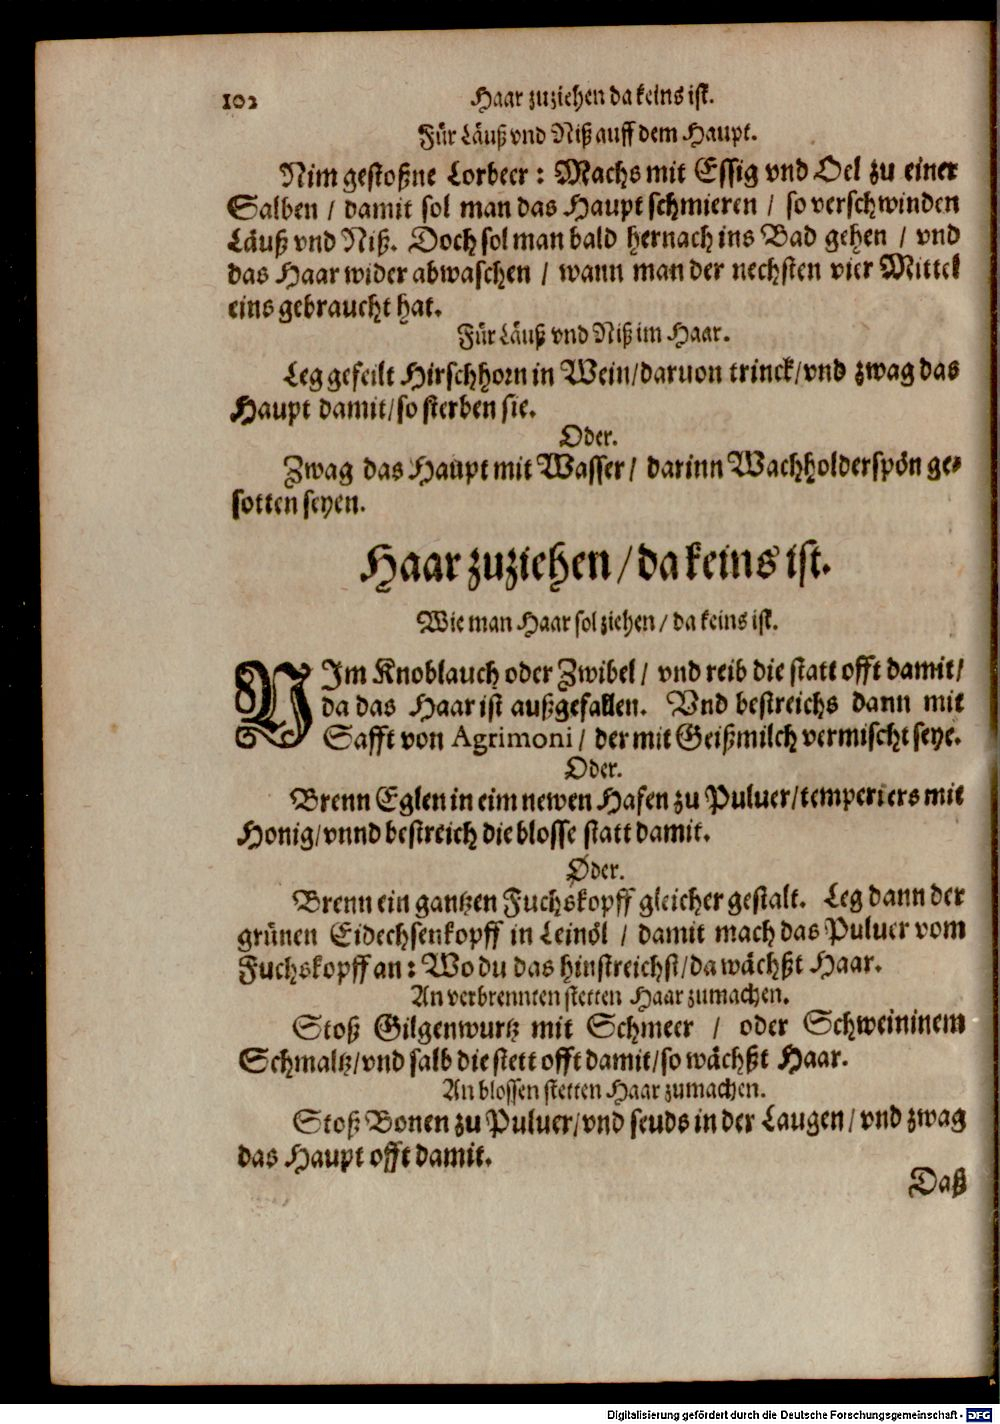 102 Haar zuziehen da keins ist.
Für Läuß vnd Niß auff dem Haupt.
Nim gestoßne Lorbeer: Machs mit Essig vnd Oel zu einer
Salben / damit sol man das Haupt schmieren / so verschwinden
Läuß vnd Niß. Doch sol man bald hernach ins Bad gehen / vnd
das Haar wider abwaschen / wann man der nechsten vier Mittel
eins gebraucht hat.
Für Läuß vnd Niß im Haar.
Leg gefeilt Hirschhorn in Wein/daruon trinck/vnd zwag das
Haupt damit/so sterben sie.
Oder.
Zwag das Haupt mit Wasser / darinn Wachholderspön ge-
sotten seyen.
Haar zuziehen / da keins ist.
Wie man Haar sol ziehen / da keins ist.
NIm Knoblauch oder Zwibel / vnd reib die statt offt damit/
da das Haar ist außgefallen. Vnd bestreichs dann mit
Safft von Agrimoni / der mit Geißmilch vermischt seye.
Oder.
Brenn Eglen in eim newen Hafen zu Puluer/temperiers mit
Honig/vnnd bestreich die blosse statt damit.
Oder.
Brenn ein gantzen Fuchskopff gleicher gestalt. Leg dann der
grünen Eidechsenkopff in Leinöl / damit mach das Puluer vom
Fuchskopff an: Wo du das hinstreichst/da wächßt Haar.
An verbrennten stetten Haar zumachen.
Stoß Gilgenwurtz mit Schmeer / oder Schweininem
Schmaltz/vnd salb die stett offt damit/so wächßt Haar.
An blossen stetten Haar zumachen.
Stoß Bonen zu Puluer/vnd seuds in der Laugen/vnd zwag
das Haupt offt damit.
Daß
Digitalisierung gefördert durch die Deutsche Forschungsgemeinschaft - DFG